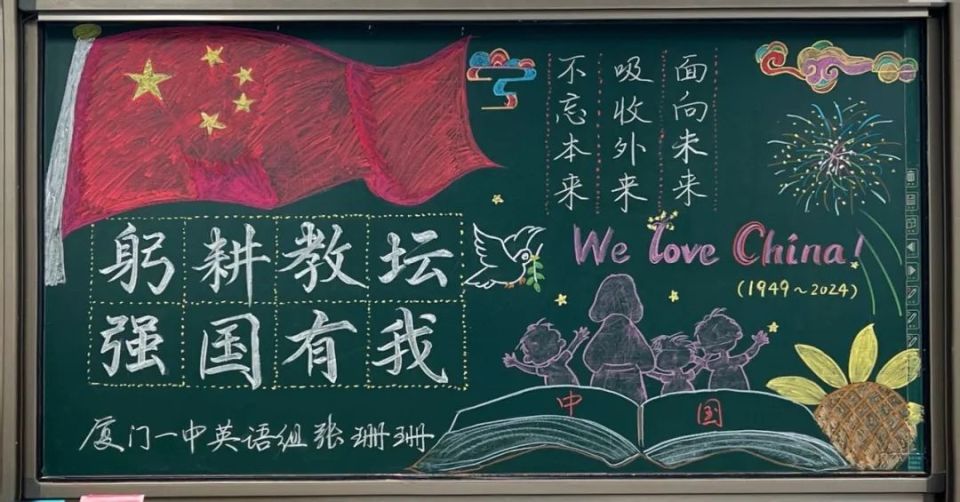 不忘本来
吸收外来
面向未来
We love China!
(1949~2024)
躬耕教坛
强国有我
中国
厦门一中英语组张珊珊